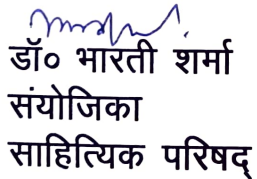 डॉ० भारती शर्मा
संयोजिका
साहित्यिक परिषद्